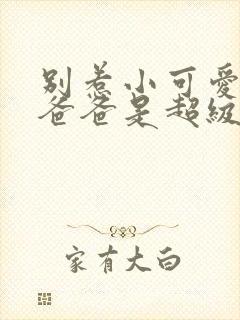 别惹小可爱
爸爸是超级
家有大白